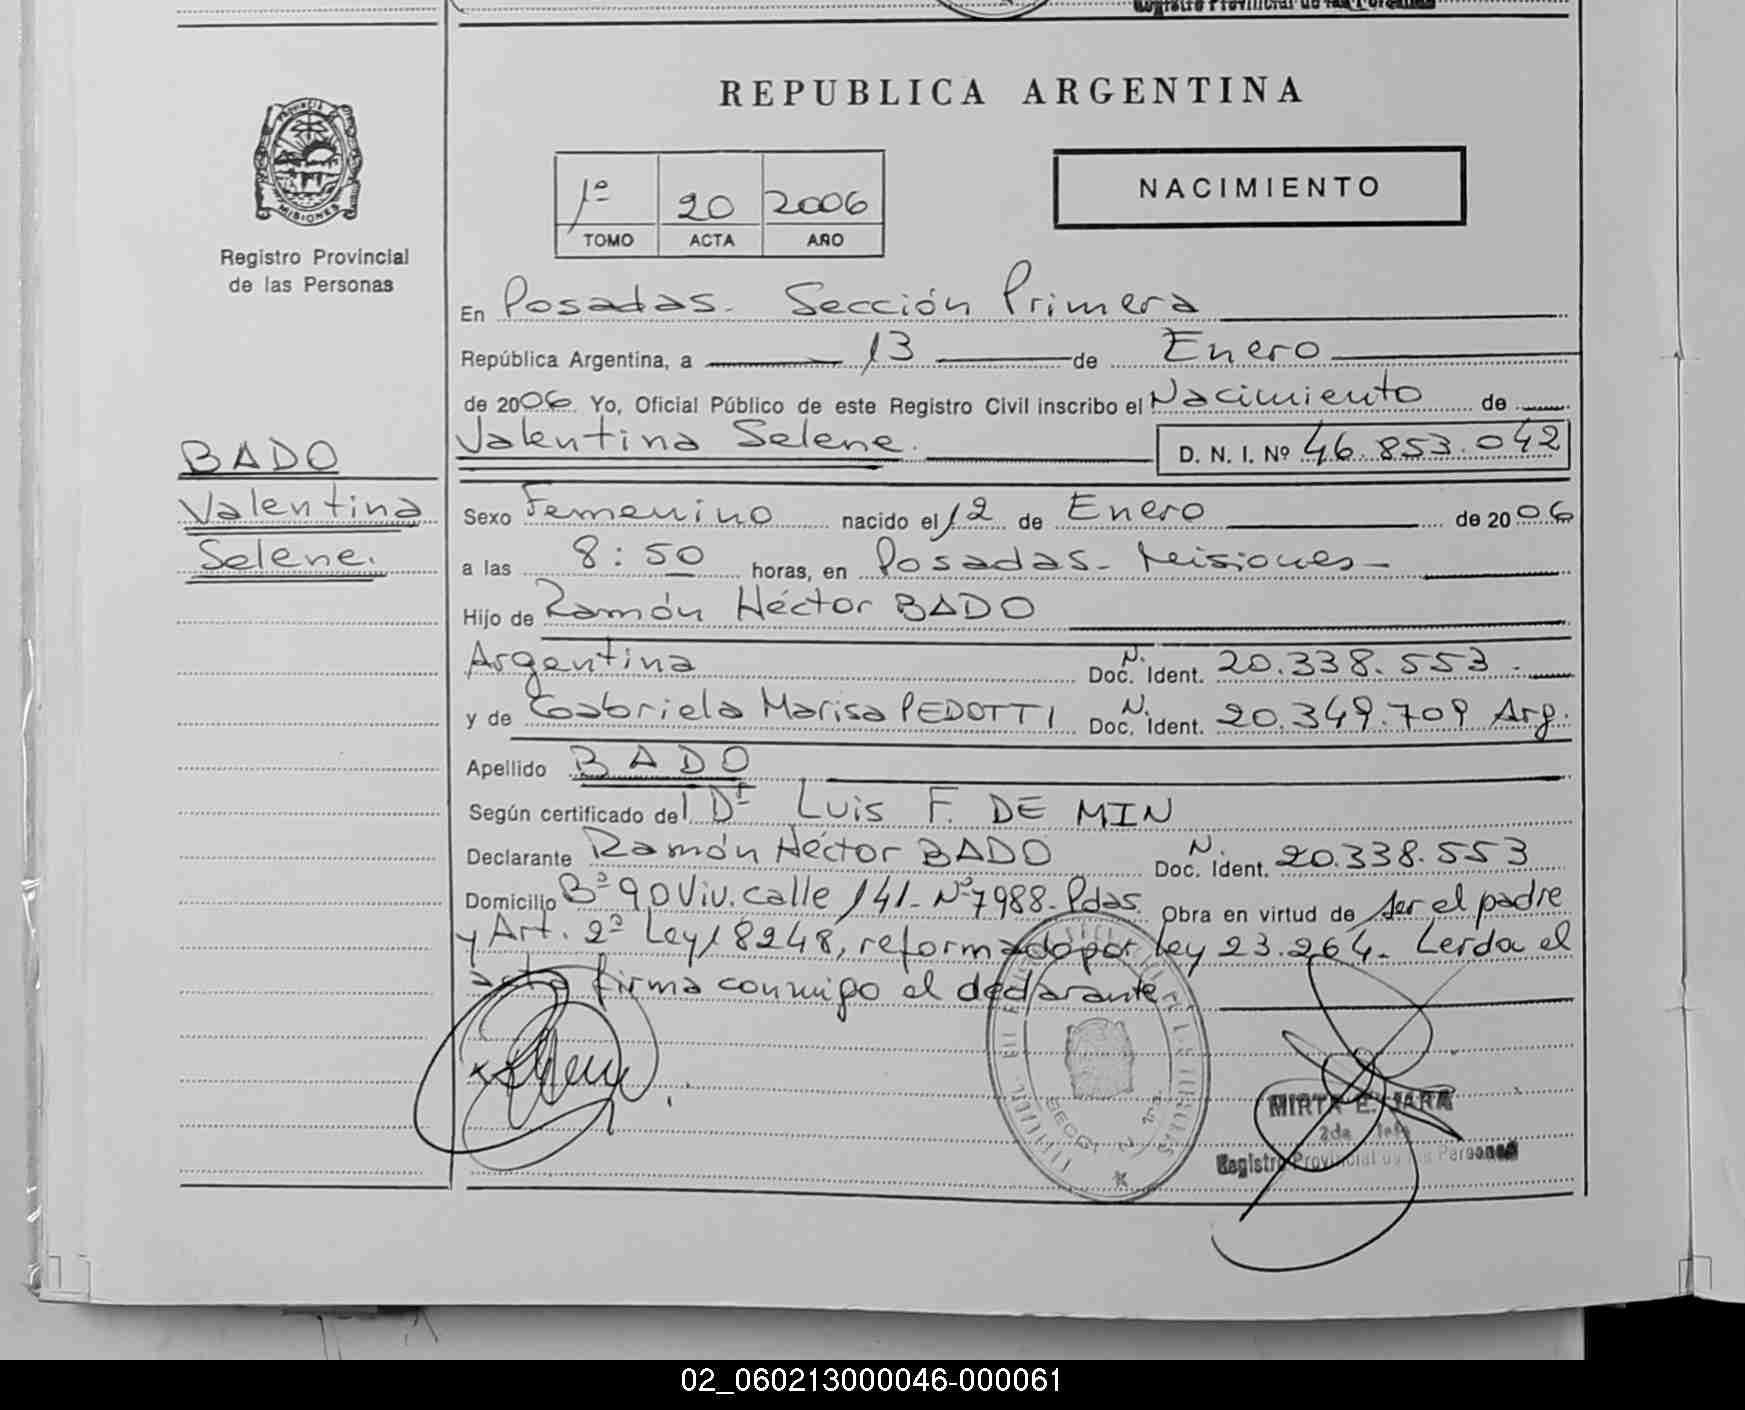 Registro Provincial de las Personas
REPUBLICA ARGENTINA
PROVINCIA
MISIONES
Registro Provincial
de las Personas
1º 20 2006
TOMO ACTA AÑO
NACIMIENTO
En Posadas - Sección Primera
República Argentina, a 13 de Enero
de 2006 Yo, Oficial Público de este Registro Civil inscribo el Nacimiento de
Valentina Selene. D. N. I. Nº 46.853.042
BADO
Valentina
Selene.
Sexo Femenino nacido el 12 de Enero de 2006
a las 8:50 horas, en Posadas - Misiones -
Hijo de Ramón Héctor BADO
Argentina N. Doc. Ident. 20.338.553.
y de Gabriela Marisa PEDOTTI N. Doc. Ident. 20.349.709 Arg.
Apellido BADO
Según certificado del Dr Luis F. DE MIN
Declarante Ramón Héctor BADO N. Doc. Ident. 20.338.553
Domicilio Bº 90 Viv. calle 141 - Nº 7988 - Pdas. Obra en virtud de ser el padre
y Art. 2º Ley 18248, reformado por Ley 23.264. Leída el
acta firma conmigo el declarante
MIRTA E. JARA
2da Jefe
Registro Provincial de las Personas
02_060213000046-000061